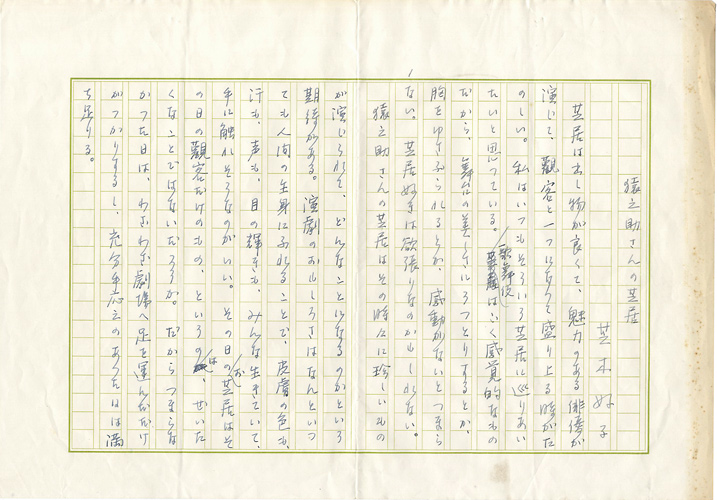 猿之助さんの芝居
芝木好子
芝居は出し物が良くて、魅力のある俳優が
演じて、観客と一つになって盛り上る時がた
のしい。私はいつもそういう芝居に巡りあい
たいと思っている。歌舞伎はごく感覚的なもの
だから、舞台の美しさにうっとりするとか、
胸をゆさぶられるとか、感動がないとつまら
ない。芝居好きは欲張りなのかもしれない。
猿之助さんの芝居はその時々に珍しいもの
が演じられて、どんなことになるのかという
期待がある。演劇のおもしろさはなんといっ
ても人間の生身にふれることで、皮膚の色も、
汗も、声も、目の輝きも、みんな生きていて、
手に触れそうなのがいい。その日の芝居はそ
の日の観客だけのもの、というのは、ぜいた
くなことではないだろうか。だからつまらな
かった日は、わざわざ劇場へ足を運んだだけ
がっかりするし、充分手応えのあった日は満
ち足りる。